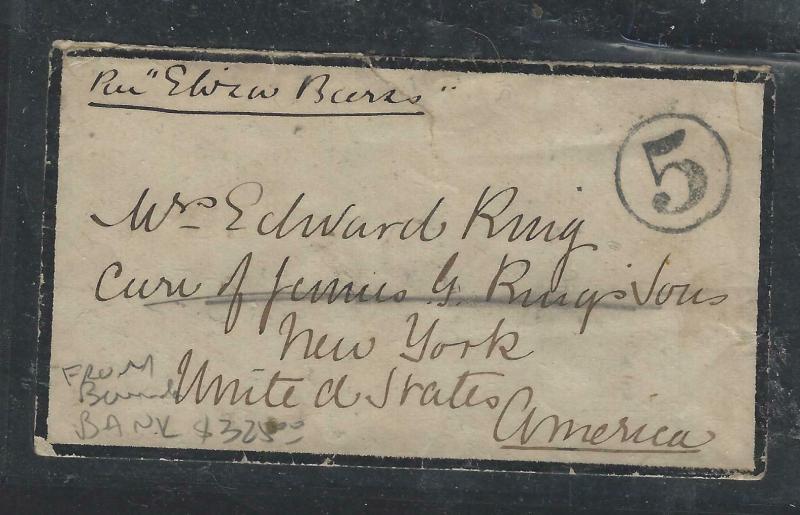 Per "Eliza Barss"
5
Mrs Edward King
Care of James G. King's Sons
New York
United States
America
FROM
BANK $325.00